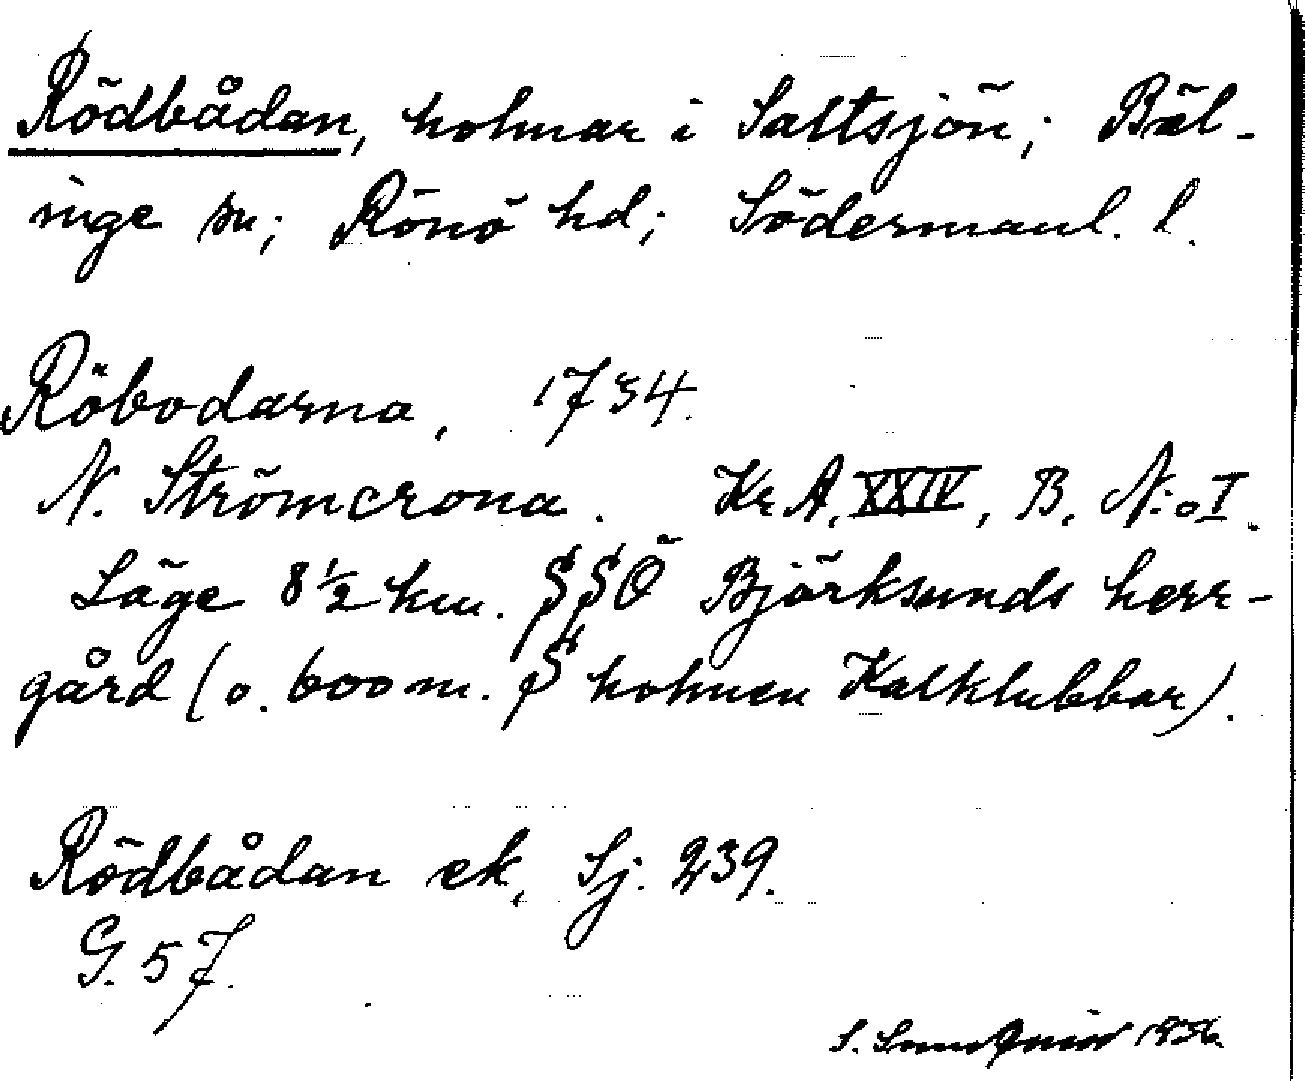 Rödbådan, holmar i Saltsjön; Bäl-
inge sn; Rönö hd; Södermanl. l.
Röbodarna, 1734.
N. Strömcrona. Kr A, XXIV, B. N:o I.
Läge 8 1/2 km. SSÖ Björksunds herr-
gård (o. 600 m. S holmen Kalklubbar).
Rödbådan ek, Sj. 239.
G. 57.
S.